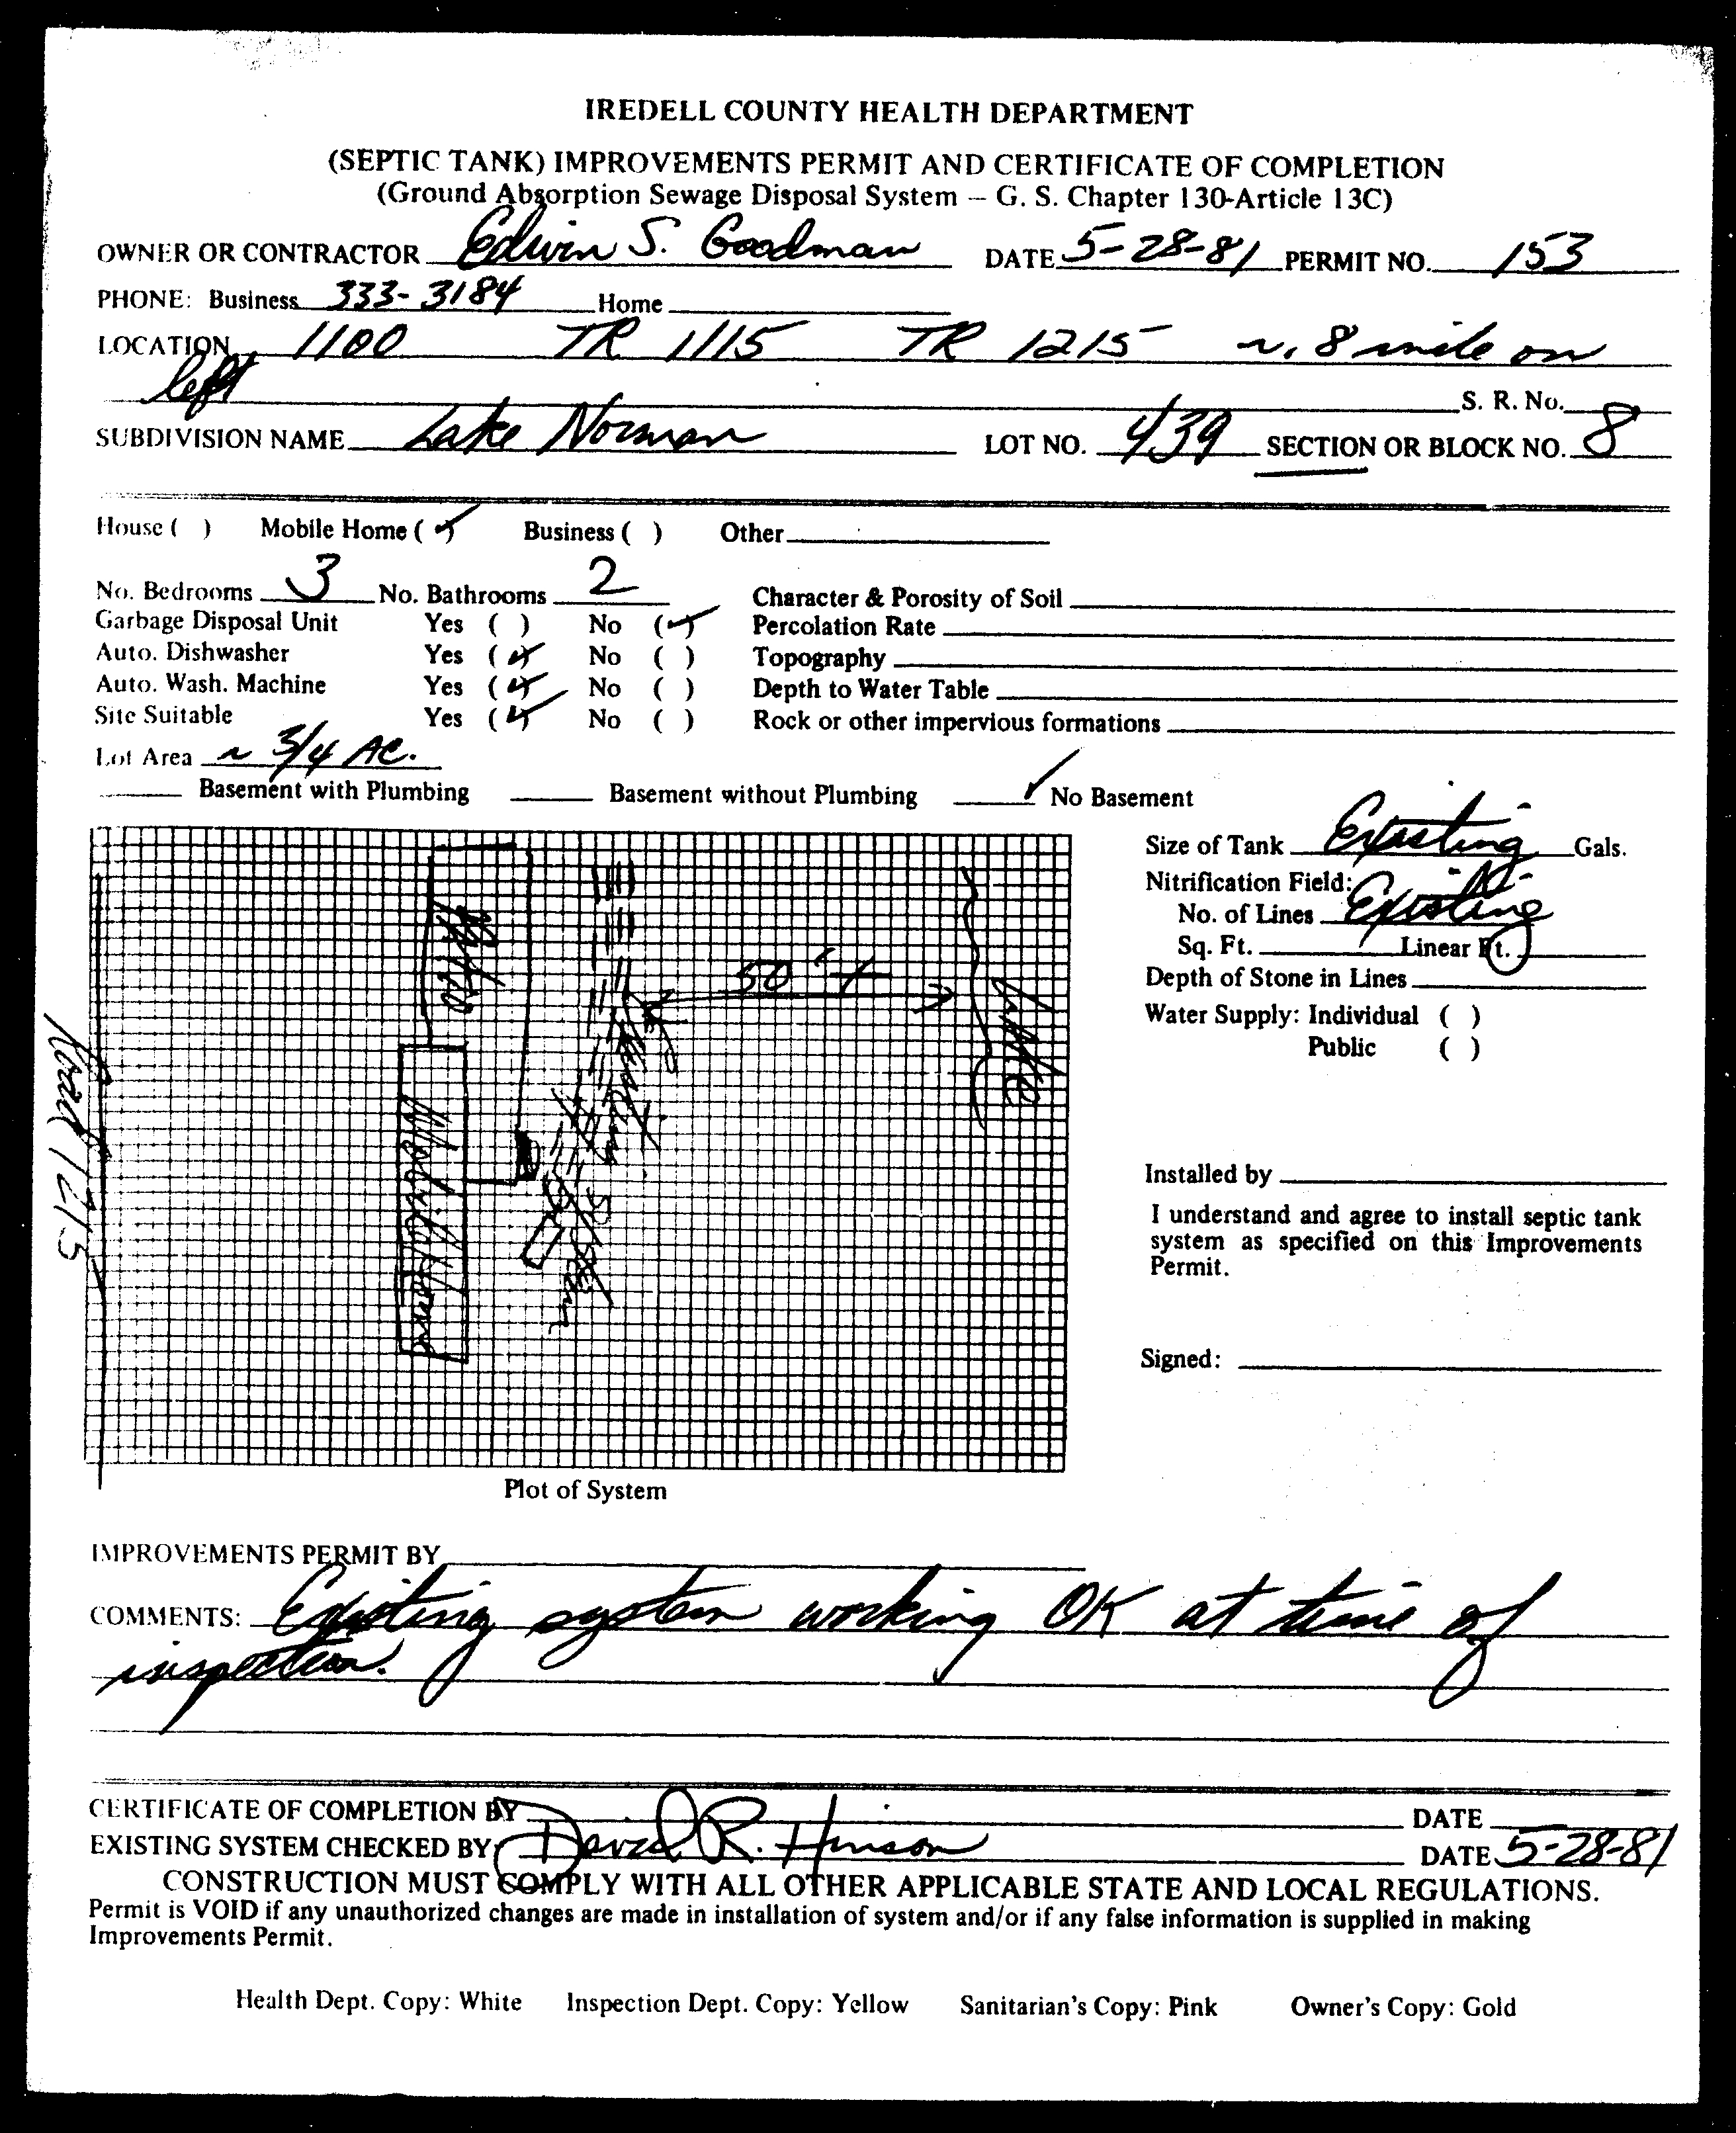 IREDELL COUNTY HEALTH DEPARTMENT
(SEPTIC TANK) IMPROVEMENTS PERMIT AND CERTIFICATE OF COMPLETION
(Ground Absorption Sewage Disposal System — G. S. Chapter 130-Article 13C)
OWNER OR CONTRACTOR Edwin S. Goodman DATE 5-28-81 PERMIT NO. 153
PHONE: Business 333-3184 Home
LOCATION 1100 TR 1115 TR 1215 ~.8 mile on
left
S. R. No.
SUBDIVISION NAME Lake Norman LOT NO. 439 SECTION OR BLOCK NO. 8
House ( ) Mobile Home (✓) Business ( ) Other
No. Bedrooms 3 No. Bathrooms 2 Character & Porosity of Soil
Garbage Disposal Unit Yes ( ) No (✓) Percolation Rate
Auto. Dishwasher Yes (✓) No ( ) Topography
Auto. Wash. Machine Yes (✓) No ( ) Depth to Water Table
Site Suitable Yes (✓) No ( ) Rock or other impervious formations
Lot Area ~ 3/4 AC.
Basement with Plumbing Basement without Plumbing ✓ No Basement
Size of Tank Existing Gals.
Nitrification Field:
No. of Lines Existing
Sq. Ft. Linear Ft.
Depth of Stone in Lines
Water Supply: Individual ( )
Public ( )
Installed by
I understand and agree to install septic tank
system as specified on this Improvements
Permit.
Signed:
Road 1215
Patio
Mobile Home
Existing
System
50'+
Lake
Plot of System
IMPROVEMENTS PERMIT BY
COMMENTS: Existing system working OK at time of
inspection.
CERTIFICATE OF COMPLETION BY DATE
EXISTING SYSTEM CHECKED BY David R. Hinson DATE 5-28-81
CONSTRUCTION MUST COMPLY WITH ALL OTHER APPLICABLE STATE AND LOCAL REGULATIONS.
Permit is VOID if any unauthorized changes are made in installation of system and/or if any false information is supplied in making
Improvements Permit.
Health Dept. Copy: White Inspection Dept. Copy: Yellow Sanitarian's Copy: Pink Owner's Copy: Gold